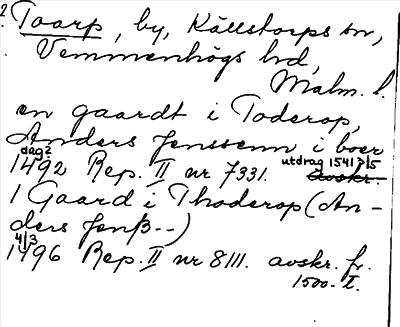 2 Toarp, by, Källstorps sn,
Vemmenhögs hd,
Malm. l.
en gaardt i Toderop,
Anders Jenssenn i boer
dag? utdrag 1541 7/5
1492 Rep. II nr 7331. avskr.
1 Gaard i Thoderop (An-
ders Jenß--)
4/3
1496 Rep. II nr 8111. avskr. fr.
1500-t.